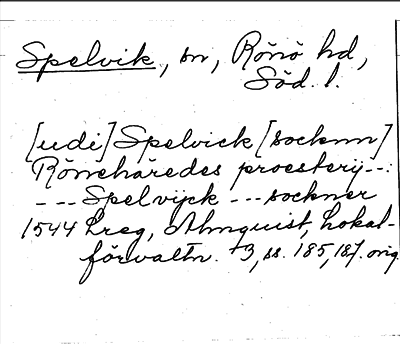 Spelvik, sn, Rönö hd,
Söd. l.
[udi] Spelvick [socknn]
Rönehäredes proesterij--:
--- Spelvijck --- sockner
1544 Lreg, Almquist, Lokal-
förvaltn. 3, ss. 185, 187. orig.